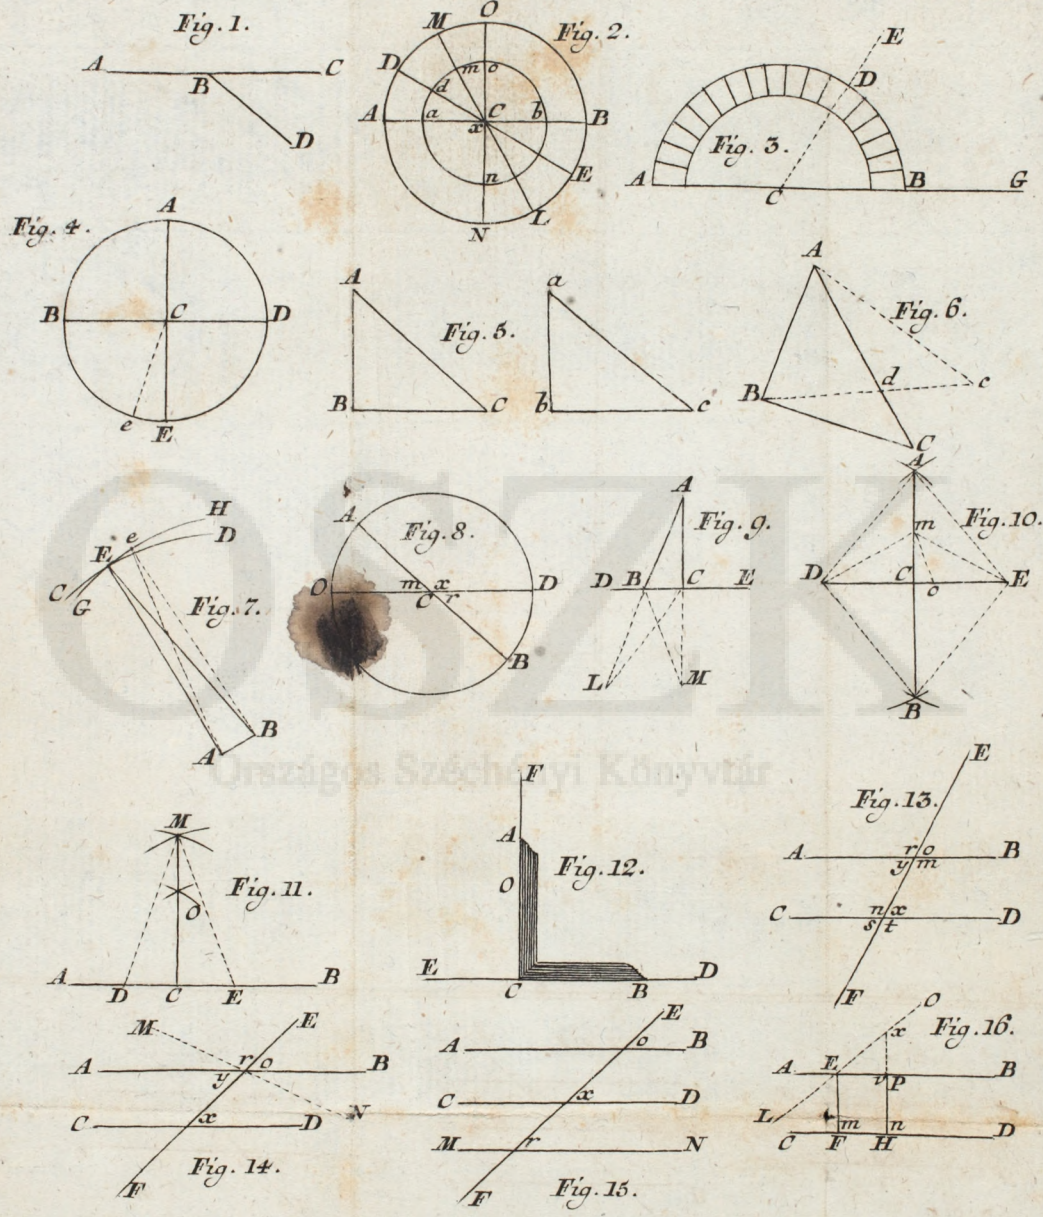 Fig. 1.
A B C D
Fig. 2.
M O D m o d A a C b B x n E L N
Fig. 3.
E D A C B G
Fig. 4.
A B C D e E
Fig. 5.
A B C a b c
Fig. 6.
A B d c C
Fig. 7.
H D e E C G B A
Fig. 8.
A O m x C r D B
Fig. 9.
A D B C E L M
Fig. 10.
A m D C o E B
OSZK
Országos Széchényi Könyvtár
Fig. 11.
M O A D C E B
Fig. 12.
F A O E C B D
Fig. 13.
E r o A B y m n x C D s t F
Fig. 14.
M E A r o B y C x D N F
Fig. 15.
E A o B C x D M r N F
Fig. 16.
O x A E v P B L m n C F H D